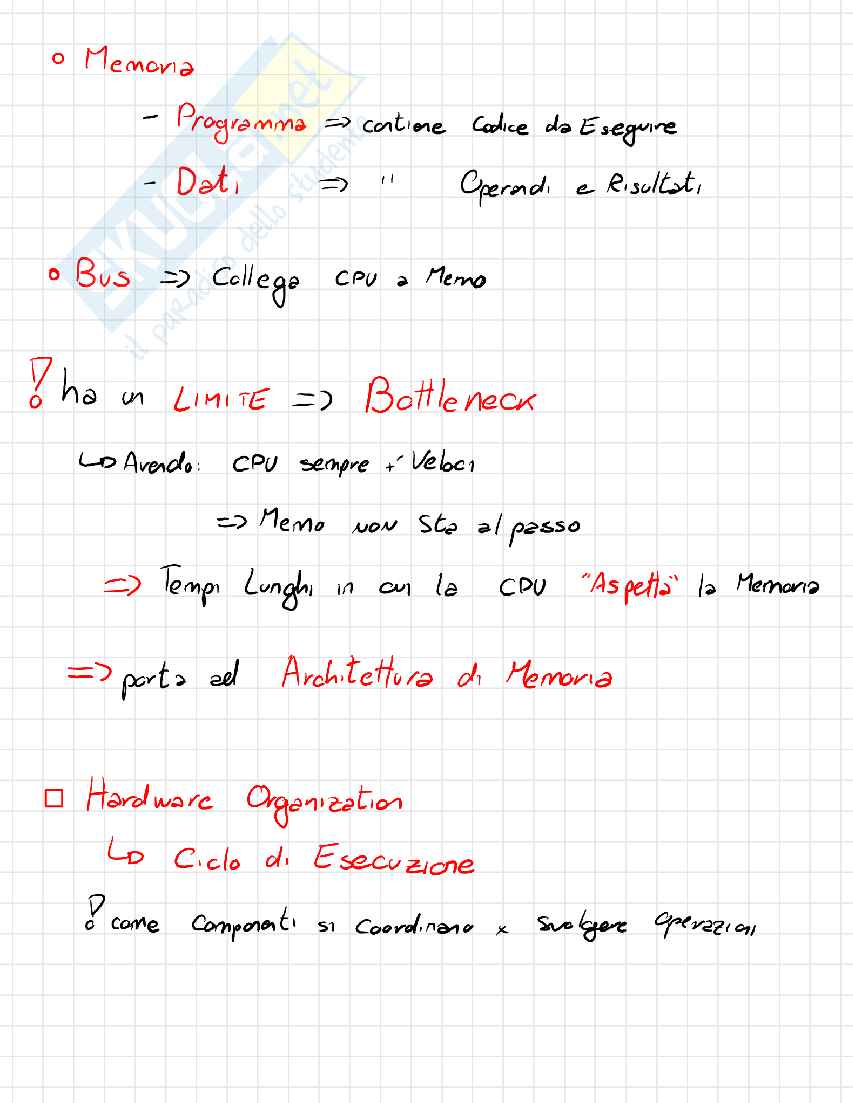 o Memoria
- Programma => contiene Codice da Eseguire
- Dati => " Operandi e Risultati
• Bus => Collega CPU a Memo
! ha un LIMITE => Bottleneck
↳ Avendo: CPU sempre +' Veloci
=> Memo NON Sta al passo
=> Tempi Lunghi in cui la CPU "Aspetta" la Memoria
=> porta ad Architettura di Memoria
□ Hardware Organization
↳ Ciclo di Esecuzione
! come Componenti si Coordinano x Svolgere Operazioni
SKUOLA.net
il paradiso dello studente